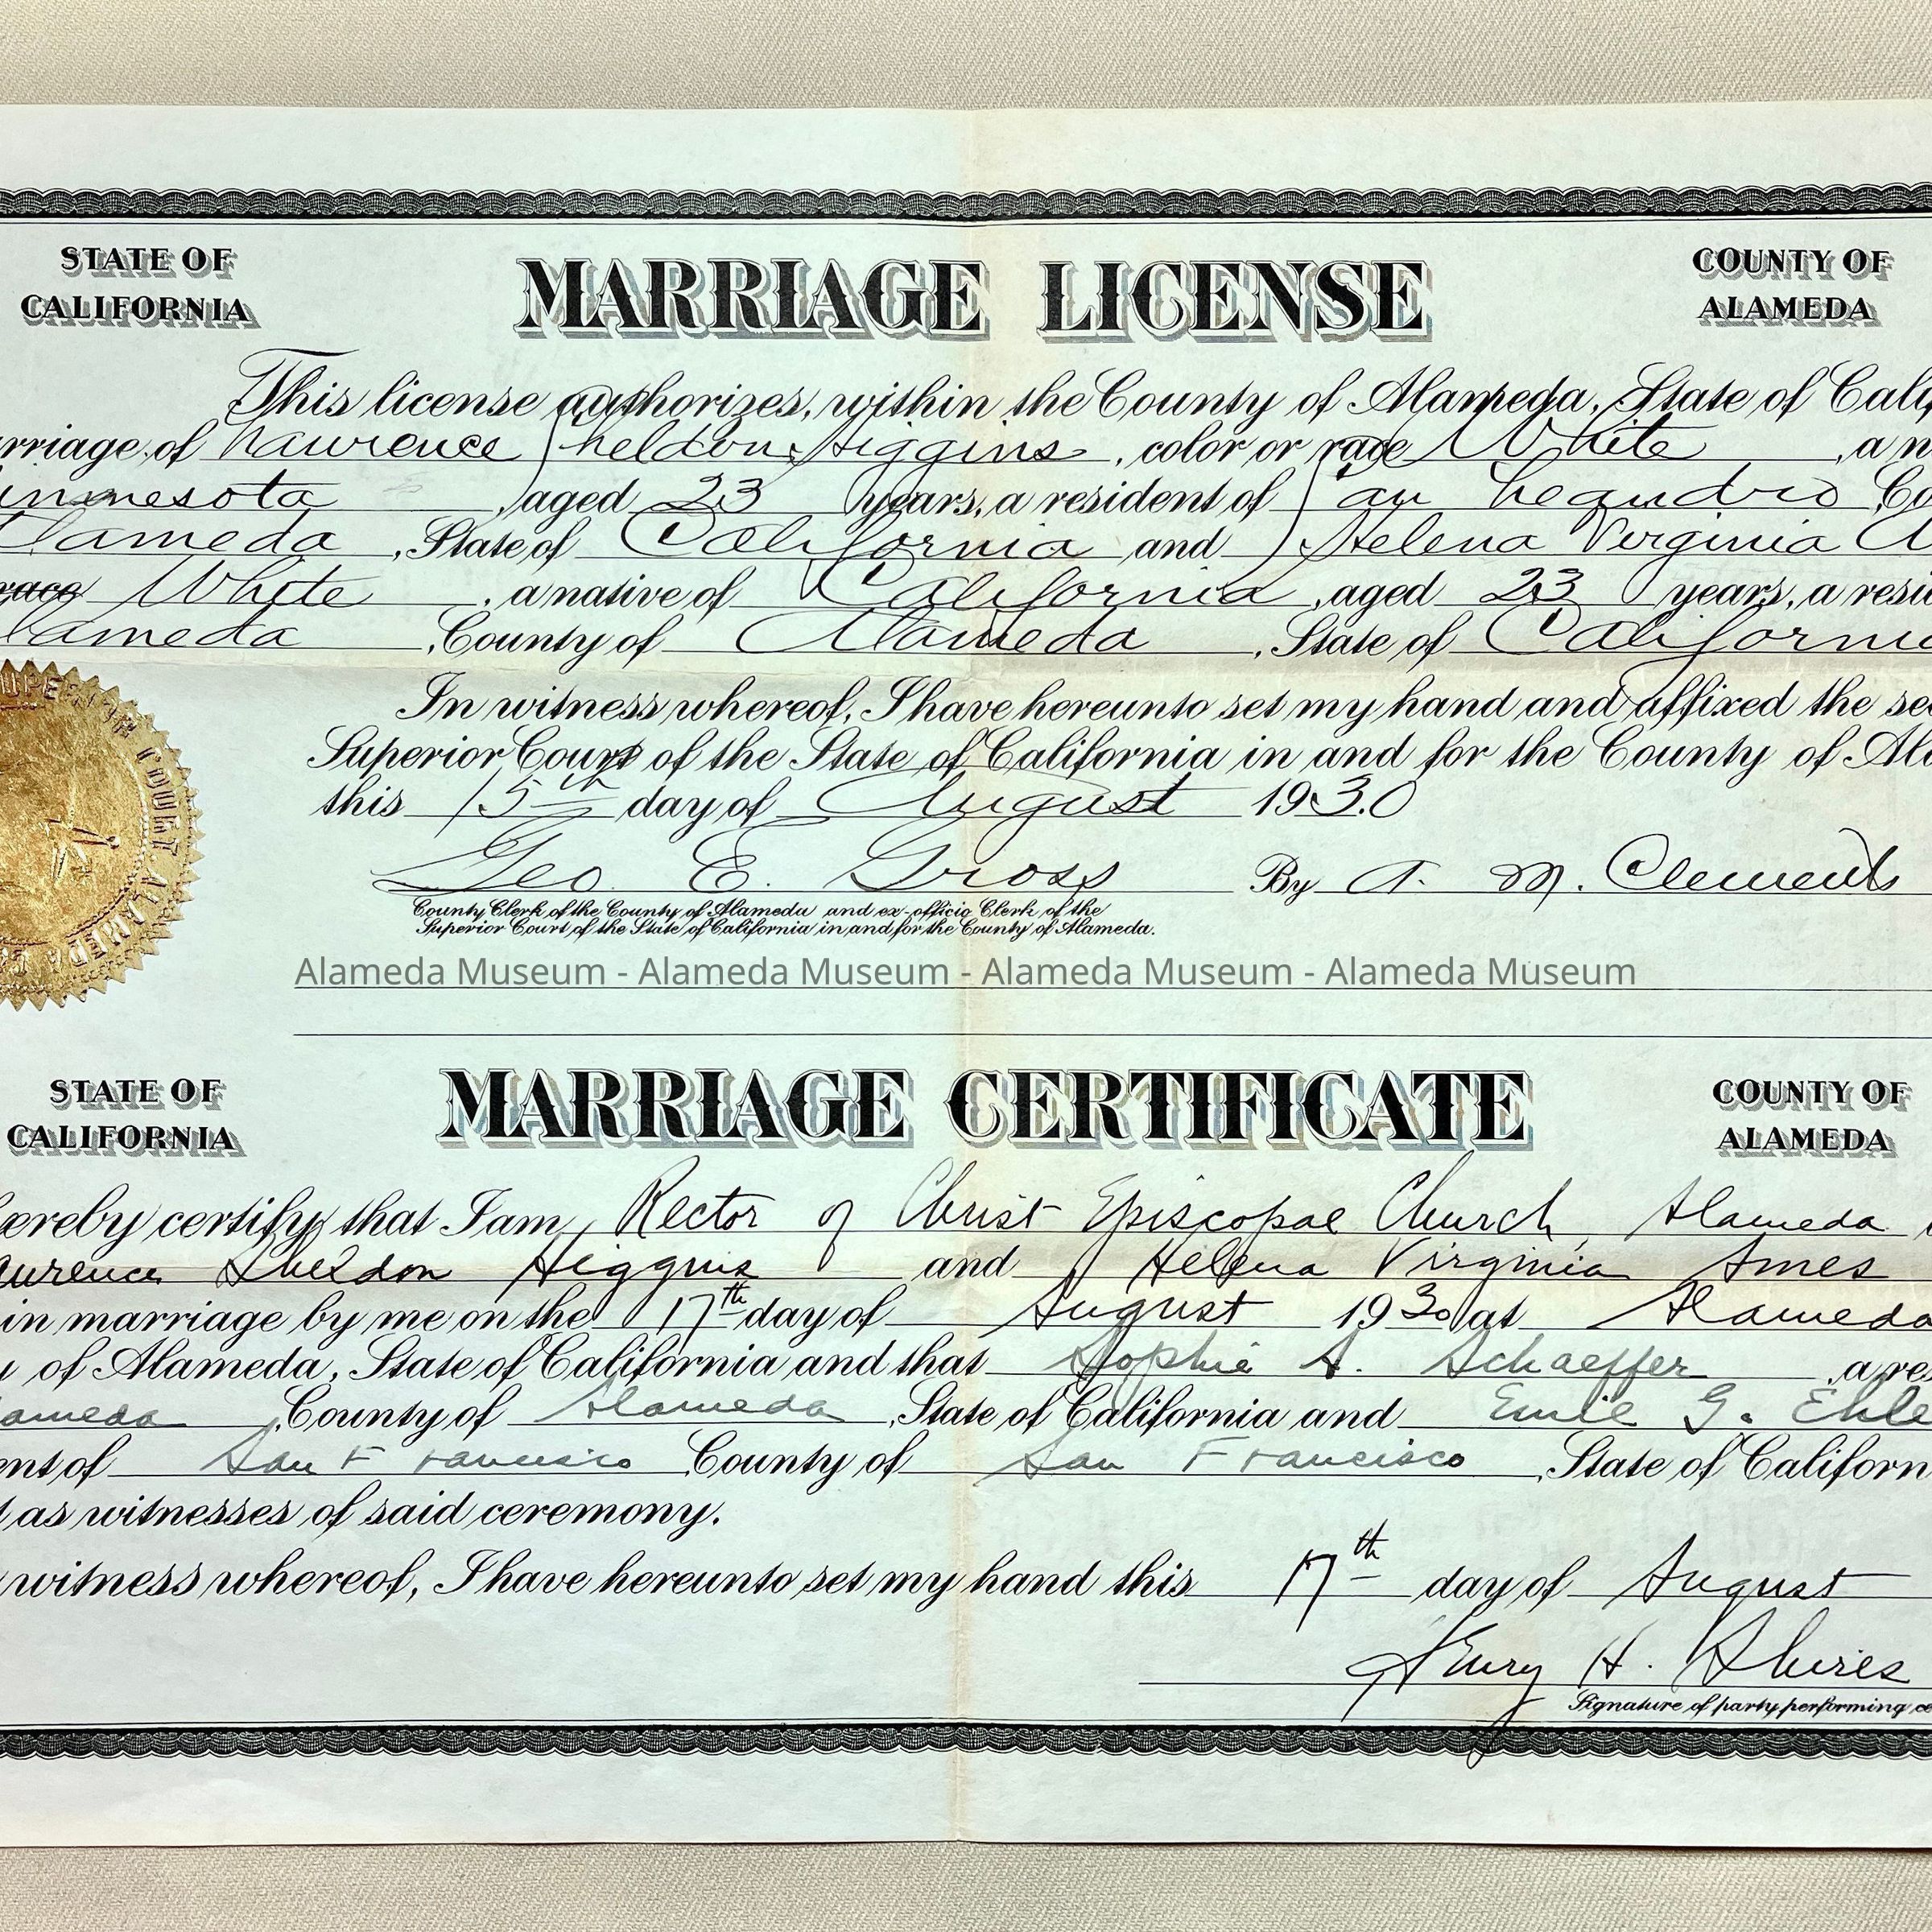 STATE OF
CALIFORNIA
MARRIAGE LICENSE
COUNTY OF
ALAMEDA
This license authorizes, within the County of Alameda, State of Calif
rriage of Lawrence Sheldon Higgins, color or race White, a n
innesota, aged 23 years, a resident of San Leandro Co
lameda, State of California and Helena Virginia A
race White, a native of California, aged 23 years, a resi
lameda, County of Alameda, State of California
In witness whereof, I have hereunto set my hand and affixed the se
Superior Court of the State of California in and for the County of Ala
this 15th day of August 1930
Geo E. Gross By A. M. Clements
County Clerk of the County of Alameda and ex-officio Clerk of the
Superior Court of the State of California in and for the County of Alameda.
Alameda Museum - Alameda Museum - Alameda Museum - Alameda Museum
STATE OF
CALIFORNIA
MARRIAGE CERTIFICATE
COUNTY OF
ALAMEDA
hereby certify that I am Rector of Christ Episcopal Church, Alameda
aurence Sheldon Higgins and Helena Virginia Ames
in marriage by me on the 17th day of August 1930 at Alameda
y of Alameda, State of California and that Sophie A. Schaeffer, a res
ameda, County of Alameda, State of California and Emil G. Ehle
ent of San Francisco County of San Francisco, State of Californ
as witnesses of said ceremony.
witness whereof, I have hereunto set my hand this 17th day of August
Henry H. Shires
Signature of party performing ce